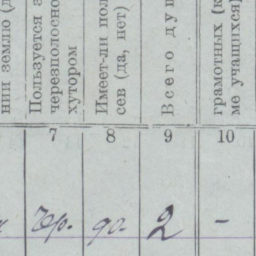 нии землю (д
Пользуется з
черезполосно
хутором
Имеет-ли пол
сев (да, нет)
Всего ду
грамотных (к
ме учащихся)
7 8 9 10
Чр. да. 2 -